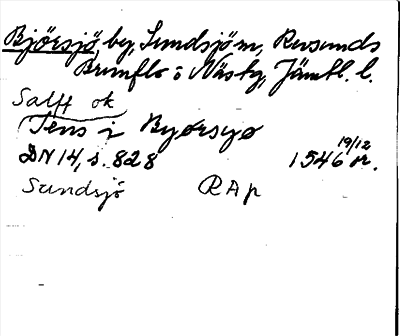 Björsjö, by, Sundsjö sn, Revsunds
Brunflo o Näs tg, Jämtl. l.
Salff ok
Jens i Byørsyø
DN 14, s. 828 19/12 1546 n.
Sundsjö RAp